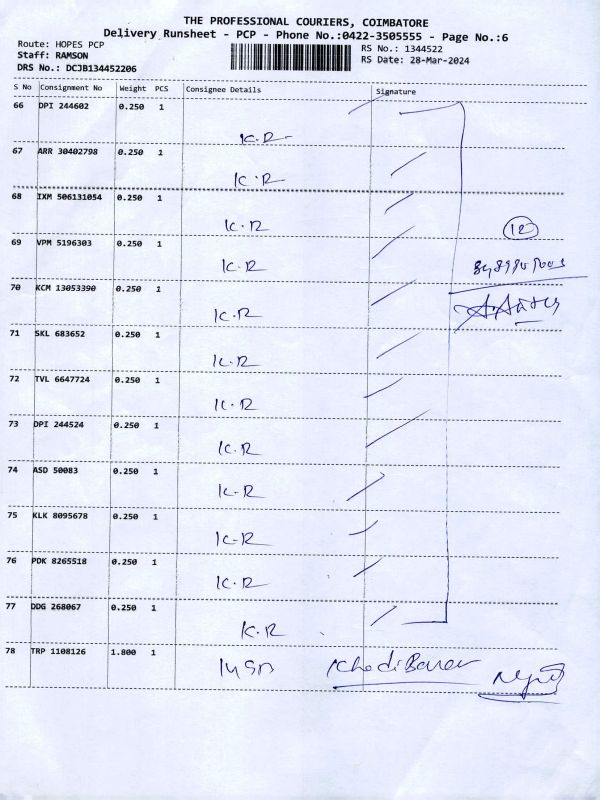 THE PROFESSIONAL COURIERS, COIMBATORE
Delivery Runsheet - PCP - Phone No.:0422-3505555 - Page No.:6
Route: HOPES PCP RS No.: 1344522
Staff: RAMSON RS Date: 28-Mar-2024
DRS No.: DCJB134452206
S No Consignment No Weight PCS Consignee Details Signature
66 DPI 244602 0.250 1
K.R
67 ARR 30402798 0.250 1
K.R
68 IXM 506131054 0.250 1
K.R
69 VPM 5196303 0.250 1
(12)
K.R
70 KCM 13053390 0.250 1
K.R
71 SKL 683652 0.250 1
K.R
72 TVL 6647724 0.250 1
K.R
73 DPI 244524 0.250 1
K.R
74 ASD 50083 0.250 1
K.R
75 KLK 8095678 0.250 1
K.R
76 PDK 8265518 0.250 1
K.R
77 DDG 268067 0.250 1
K.R
78 TRP 1108126 1.800 1